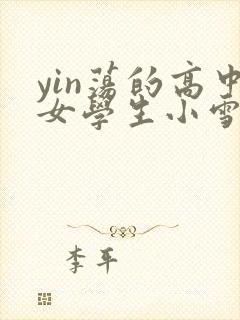 yin蕩的高中
女學生小雪
李平